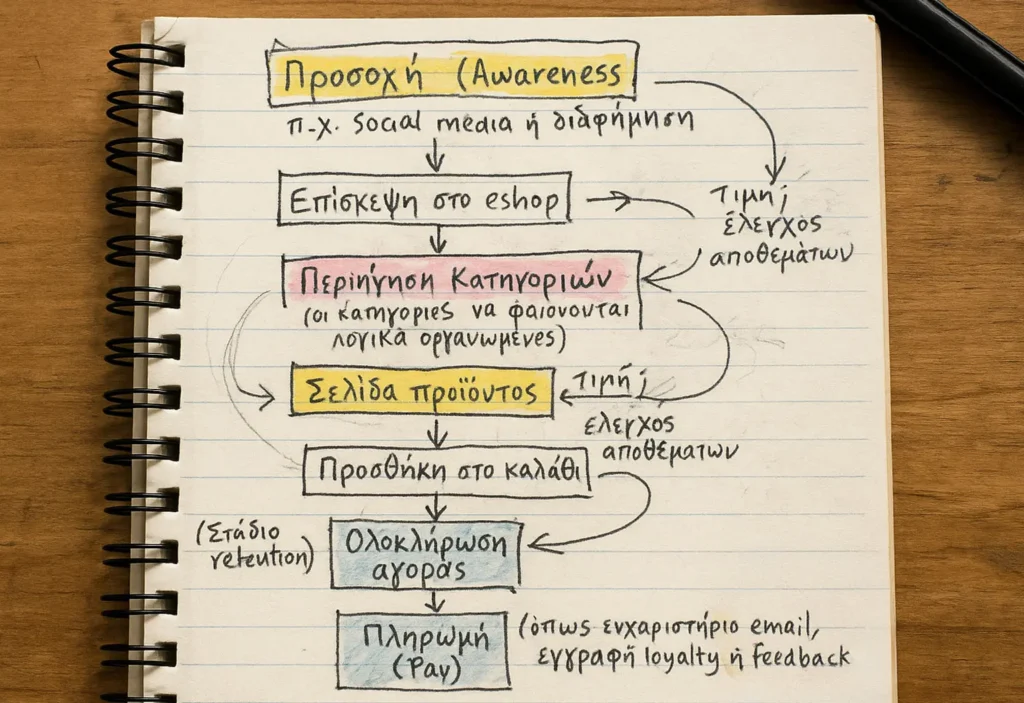 Προσοχή (Awareness
π-χ. Social media ή διαφήμηση
Επίσκεψη στο eshop
Τιμή;
έλεγχος
αποθεμάτων
Περιήγηση Κατηγοριών
(οι κατηγορίες να φαιονουται
λογικά οργανωμένες)
Σελίδα προϊόντος
Τιμή;
έλεγχος
αποθέματων
Προσθήκη στο καλάθι
(Στάδιο
retention)
Ολοκλήρωση
αγοράς
Πληρωμή
(Pay)
(όπως ευχαριστήριο email,
εγγραφή loyalty ή feedback